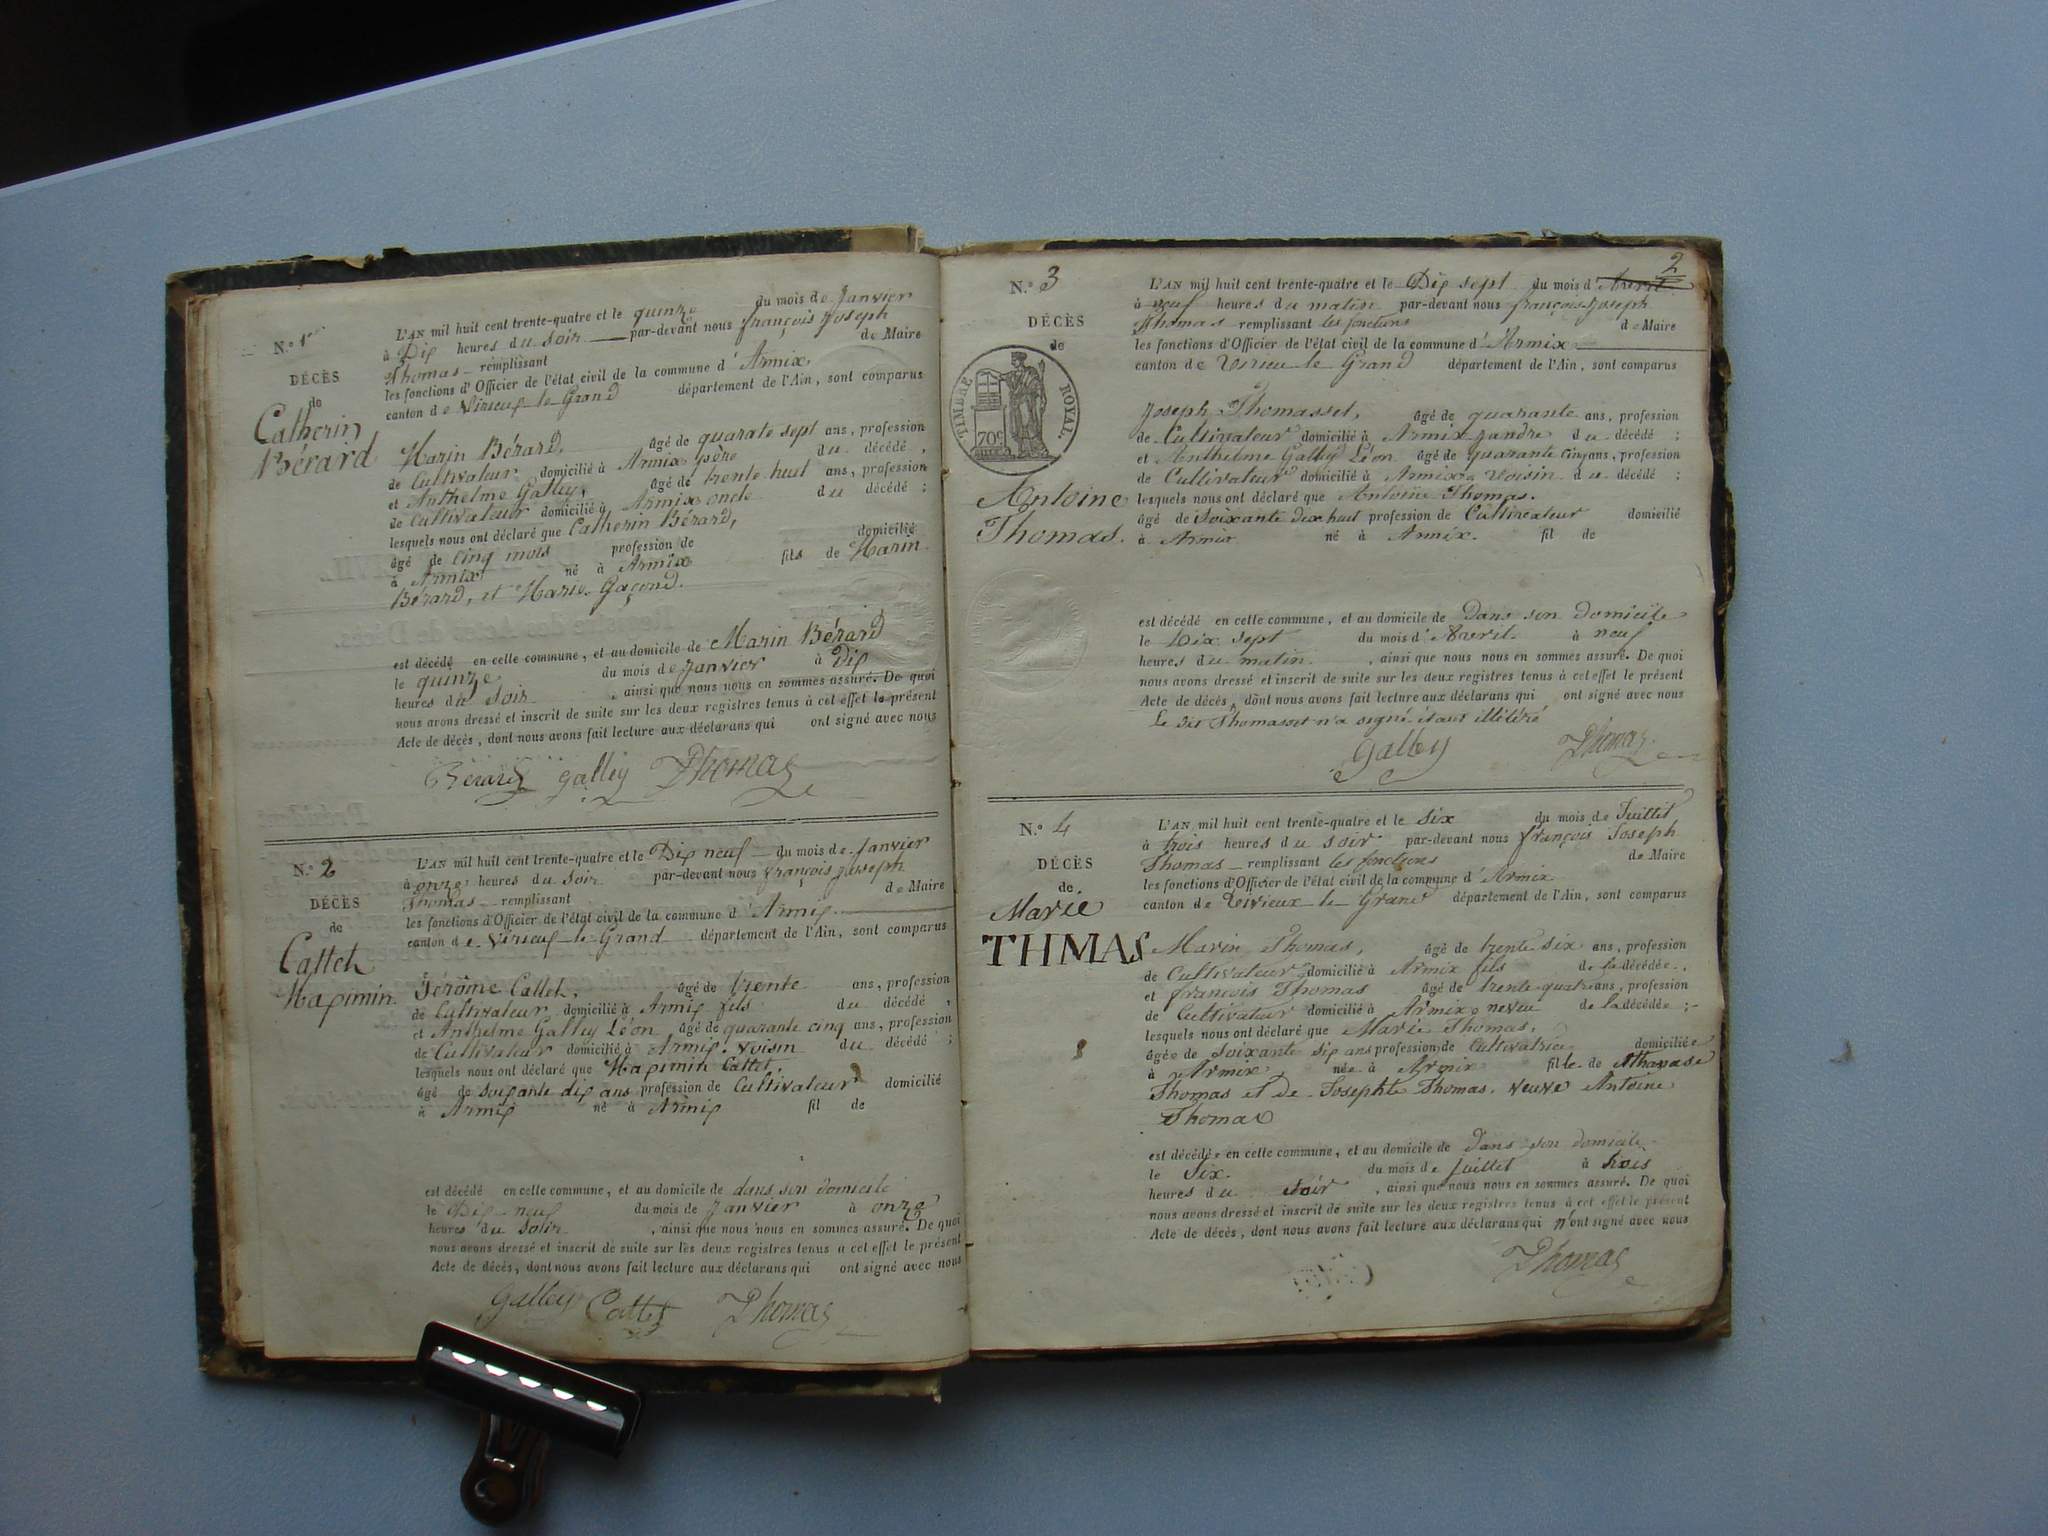 N.º 1er
DÉCÈS
de
Catherin
Bérard
L'AN mil huit cent trente-quatre et le quinze du mois de Janvier
à Dix heures du Soir par-devant nous françois Joseph
Thomas remplissant de Maire
les fonctions d'Officier de l'état civil de la commune d'Armix
canton de Virieux le Grand département de l'Ain, sont comparus
Marin Bérard, âgé de quarate sept ans, profession
de Cultivateur domicilié à Armix père du décédé,
et Anthelme Galley, âgé de trente huit ans, profession
de Cultivateur domicilié à Armix oncle du décédé;
lesquels nous ont déclaré que Catherin Bérard,
âgé de cinq mois profession de domicilié
à Armix né à Armix fils de Marin
Bérard, et Marie Gaçond.
est décédé en celle commune, et au domicile de Marin Bérard
le quinze du mois de Janvier à Dix
heures du Soir, ainsi que nous nous en sommes assuré. De quoi
nous avons dressé et inscrit de suite sur les deux registres tenus à cet effet le présent
Acte de décès, dont nous avons fait lecture aux déclarans qui ont signé avec nous
Berard galley Thomas
N.º 2
DÉCÈS
de
Cattet
Maximin
L'AN mil huit cent trente-quatre et le Dix neuf du mois de Janvier
à onze heures du Soir par-devant nous françois Joseph
Thomas remplissant de Maire
les fonctions d'Officier de l'état civil de la commune d'Armix
canton de Virieux le Grand département de l'Ain, sont comparus
Jérôme Cattet, âgé de trente ans, profession
de Cultivateur domicilié à Armix fils du décédé,
et Anthelme Galley Léon âgé de quarante cinq ans, profession
de Cultivateur domicilié à Armix. voisin du décédé;
lesquels nous ont déclaré que Maximin Cattet,
âgé de soixante dix ans profession de Cultivateur domicilié
à Armix né à Armix fil de
est décédé en celle commune, et au domicile de dans son domicile
le Dix neuf du mois de Janvier à onze
heures du Soir, ainsi que nous nous en sommes assuré. De quoi
nous avons dressé et inscrit de suite sur les deux registres tenus à cet effet le présent
Acte de décès, dont nous avons fait lecture aux déclarans qui ont signé avec nous
Galley Cattet Thomas
2
N.º 3
DÉCÈS
de
TIMBRE ROYAL.
70c
Antoine
Thomas.
L'AN mil huit cent trente-quatre et le Dix sept du mois d'Avril
à neuf heures du matin par-devant nous françois Joseph
Thomas remplissant les fonctions de Maire
les fonctions d'Officier de l'état civil de la commune d'Armix
canton de Virieu le Grand département de l'Ain, sont comparus
Joseph Thomasset, âgé de quarante ans, profession
de Cultivateur domicilié à Armix jandre du décédé;
et Anthelme Galley Léon âgé de quarante cinq ans, profession
de Cultivateur domicilié à Armix voisin du décédé;
lesquels nous ont déclaré que Antoine Thomas.
âgé de Soixante dix huit profession de Cultivateur domicilié
à Armix né à Armix. fil de
est décédé en celle commune, et au domicile de Dans son domicile
le Dix sept du mois d'Avril à neuf
heures du matin, ainsi que nous nous en sommes assuré. De quoi
nous avons dressé et inscrit de suite sur les deux registres tenus à cet effet le présent
Acte de décès, dont nous avons fait lecture aux déclarans qui ont signé avec nous
Le dit Thomasset n'a signé étant illitéré
Galley Thomas
N.º 4
DÉCÈS
de
Marie
THMAS
L'AN mil huit cent trente-quatre et le Six du mois de Juillet
à trois heures du soir par-devant nous françois Joseph
Thomas remplissant les fonctions de Maire
les fonctions d'Officier de l'état civil de la commune d'Armix
canton de Virieux le Grand département de l'Ain, sont comparus
Marin Thomas, âgé de trente six ans, profession
de Cultivateur domicilié à Armix fils de la décédée,
et françois Thomas âgé de trente quatre ans, profession
de Cultivateur domicilié à Armix neveu de la décédée;
lesquels nous ont déclaré que Marie Thomas,
âgée de soixante six ans profession de Cultivatrice domiciliée
à Armix née à Armix fille de Athanase
Thomas et de Josephte Thomas, veuve Antoine
Thomas
est décédée en celle commune, et au domicile de Dans son domicile
le Six. du mois de Juillet à trois
heures du soir, ainsi que nous nous en sommes assuré. De quoi
nous avons dressé et inscrit de suite sur les deux registres tenus à cet effet le présent
Acte de décès, dont nous avons fait lecture aux déclarans qui n'ont signé avec nous
Thomas